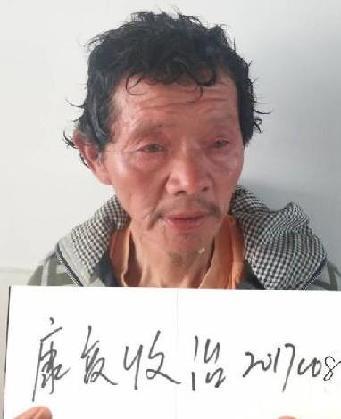 康复收治201708